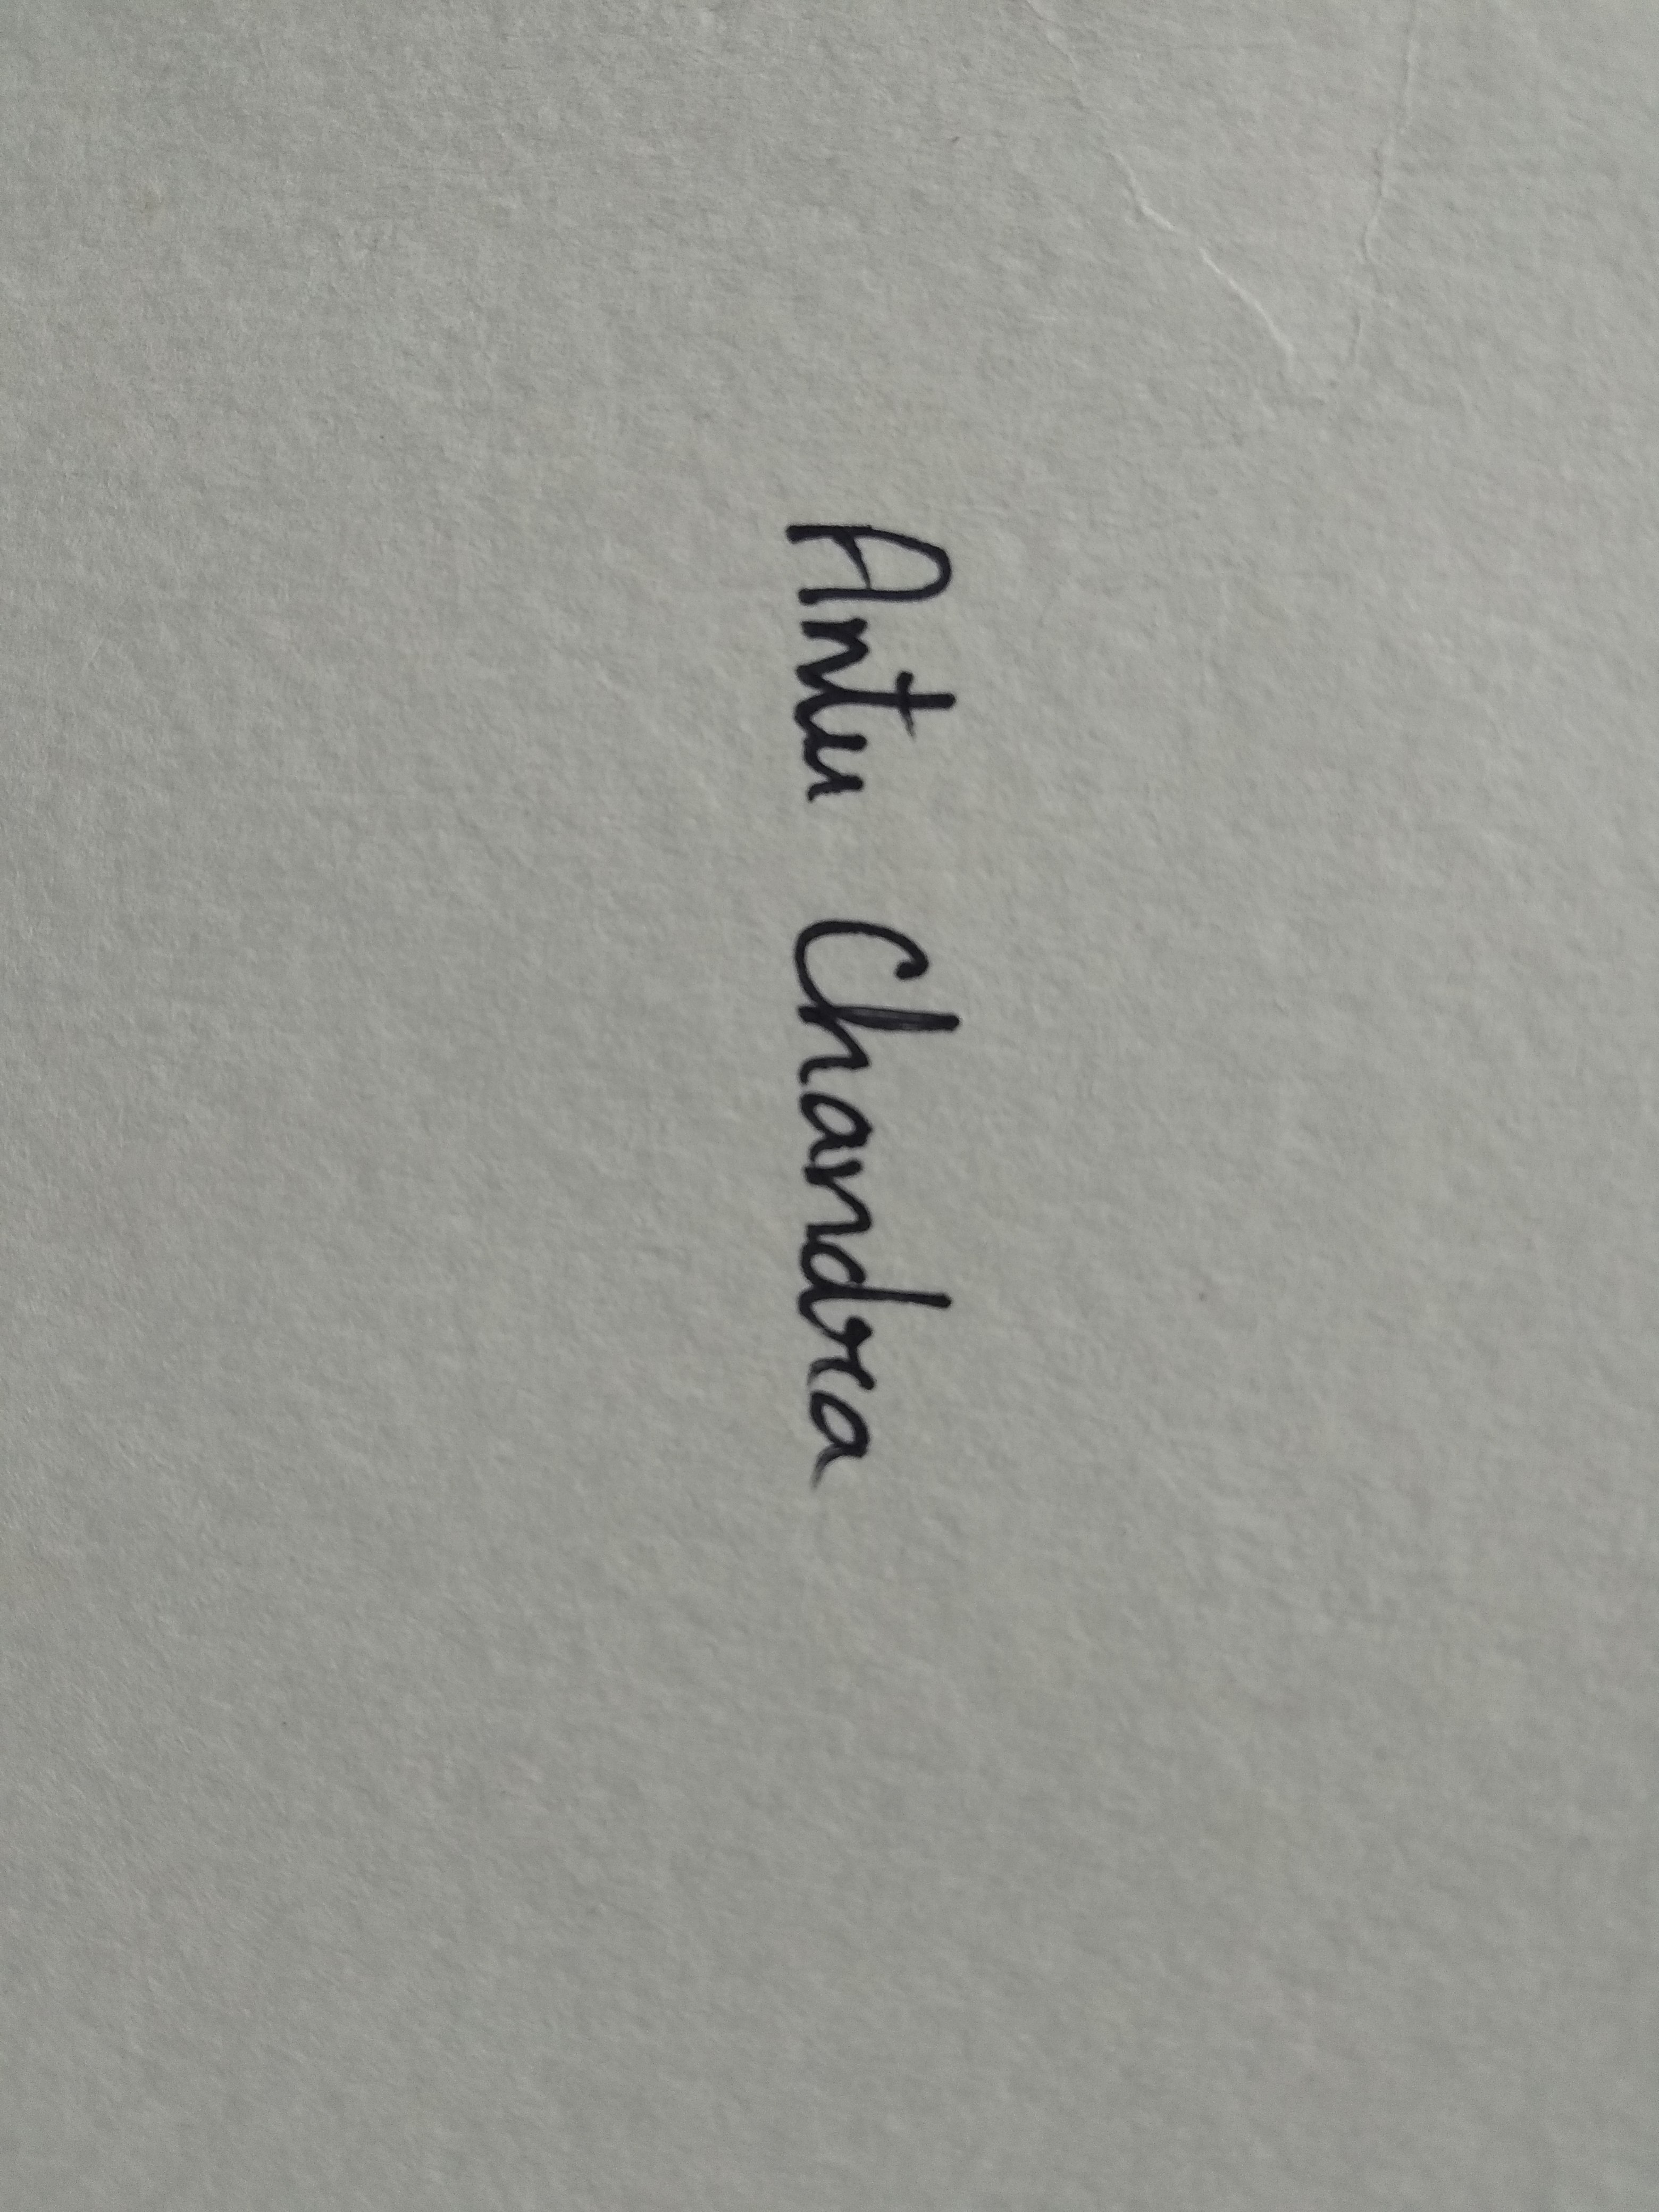 Antu Chandra